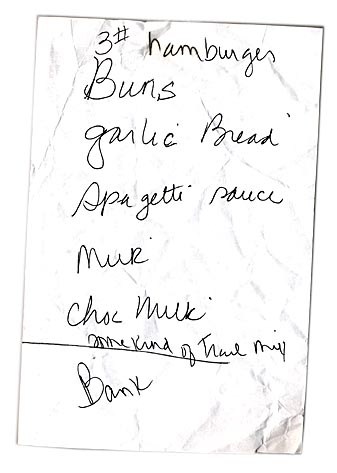 3# hamburges
Buns
garlic Bread
Spagetti sauce
Milk
Choc Milk
some kind of Trail mix
Bank